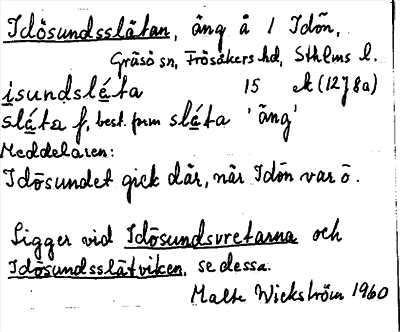 Idösundsslätan, äng å 1 Idön,
Gräsö sn, Frösåkers hd, Sthlms l.
isundsléta 15 ek (1278a)
sléta f, best. form sléta 'äng'
Meddelaren:
Idösundet gick där, när Idön var ö.
Ligger vid Idösundsvretarna och
Idösundsslätviken, se dessa.
Malte Wickström 1960